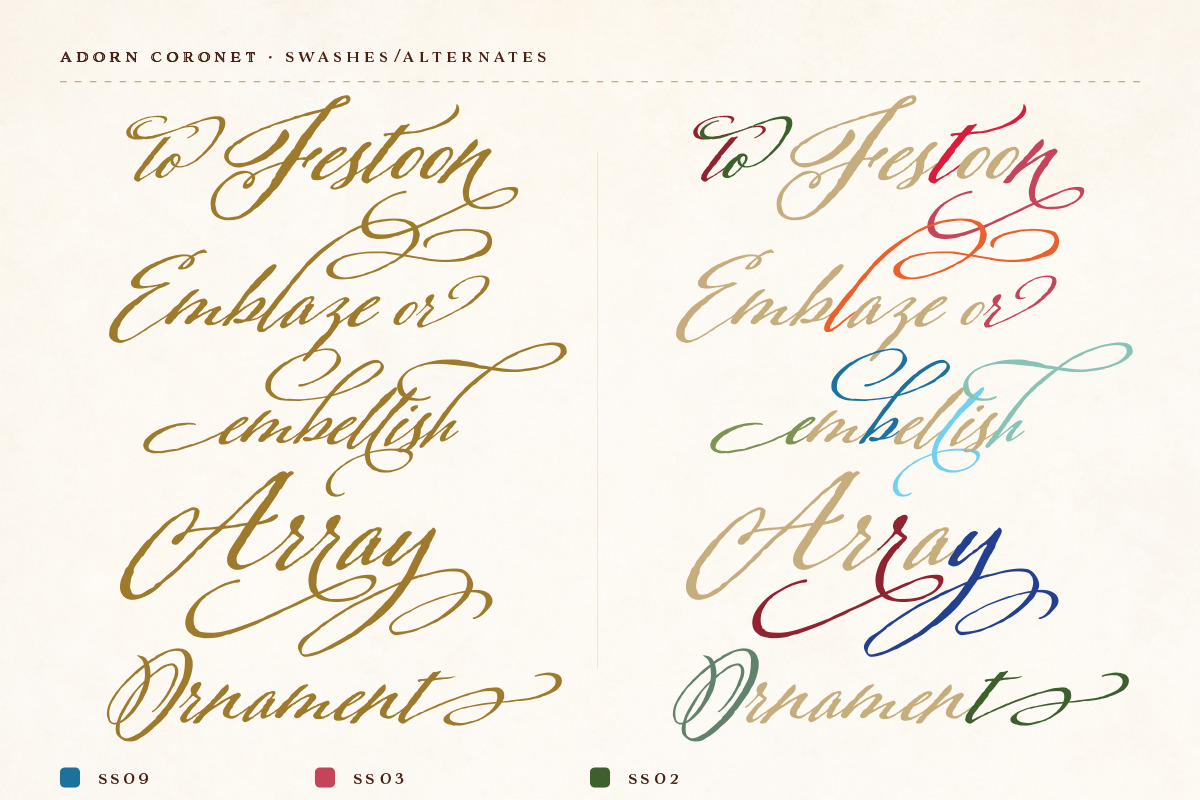 ADORN CORONET · SWASHES/ALTERNATES
To Festoon
Emblaze or
embellish
Array
Ornament
To Festoon
Emblaze or
embellish
Array
Ornament
SS09 SS03 SS02